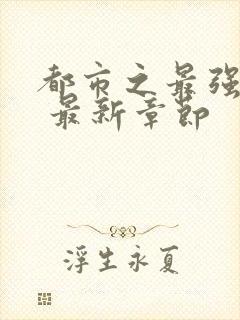 都市之最强
最新章节
浮生永夏